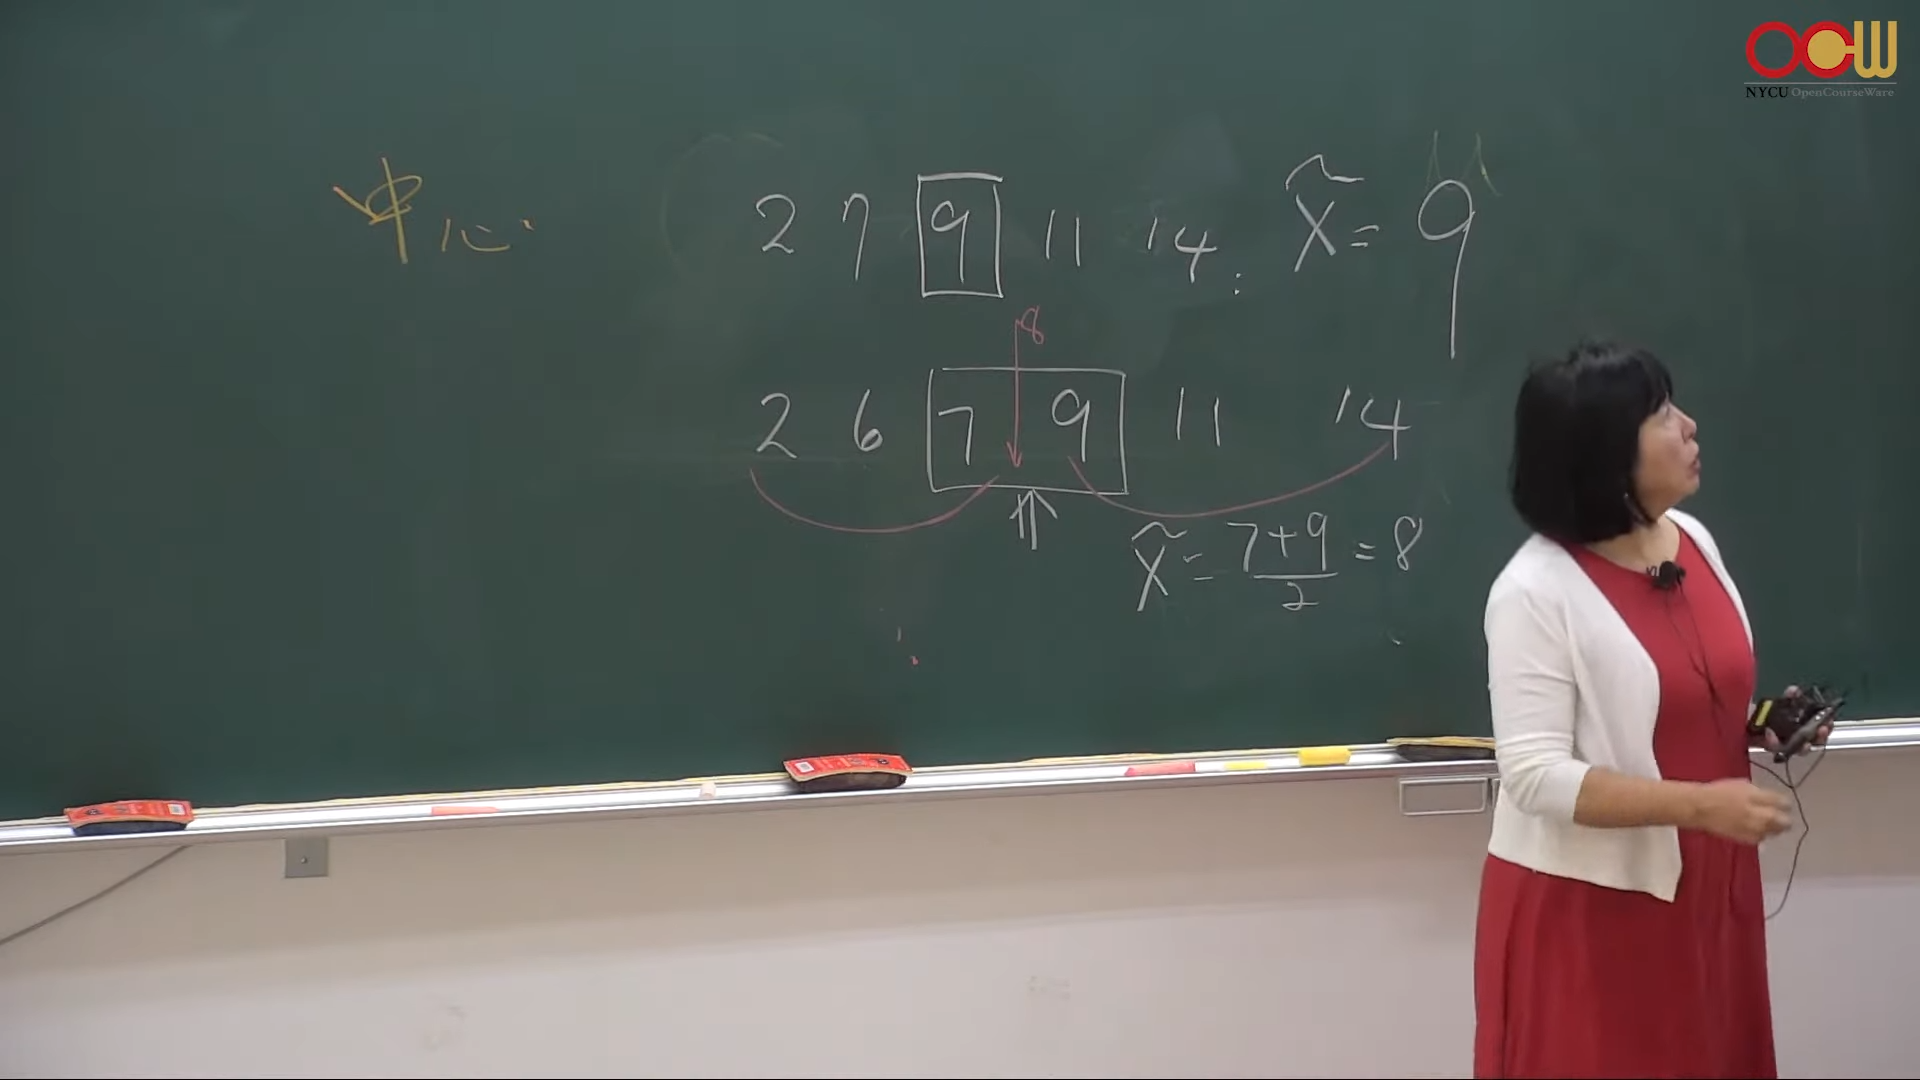 OCW
NYCU OpenCourseWare
中心
2 7 9 11 14 : x̃ = 9
8
2 6 7 9 11 14
x̃ = (7+9)/2 = 8